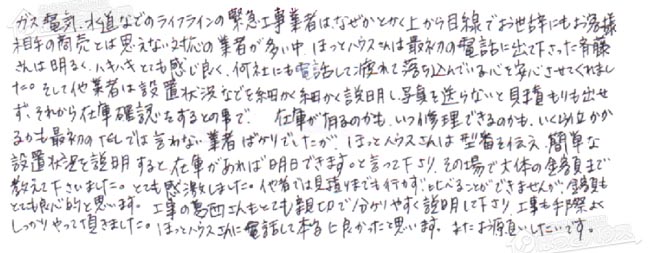 ガス、電気、水道などのライフラインの緊急工事業者はなぜかとかく上から目線でお世辞にもお客様
相手の商売とは思えない対応の業者が多い中、ほっとハウスさんは最初の電話に出て下さった斉藤
さんは明るく、ハキハキとても感じ良く、何社にも電話して疲れて落ち込んでいる心を安心させてくれまし
た。そして他業者は設置状況などを細かく細かく説明し写真を送らないと見積もりも出せ
ず、それから在庫確認をするとの事で、在庫が有るのかも、いつ修理できるのかも、いくら位かか
るかも最初のTELでは言わない業者ばかりでしたが、ほっとハウスさんは型番を伝え、簡単な
設置状況を説明すると在庫があれば明日できますと言って下さり、その場で大体の金額まで
教えて下さいました。とても感激しました。他者では見積りまでも行かず、比べることができませんが、金額も
とても良心的と思います。工事の葛西さんもとても親切で分かりやすく説明して下さり、工事も手際よく
しっかりやって頂きました。ほっとハウスさんに電話して本当に良かったと思います。またお願いしたいです。